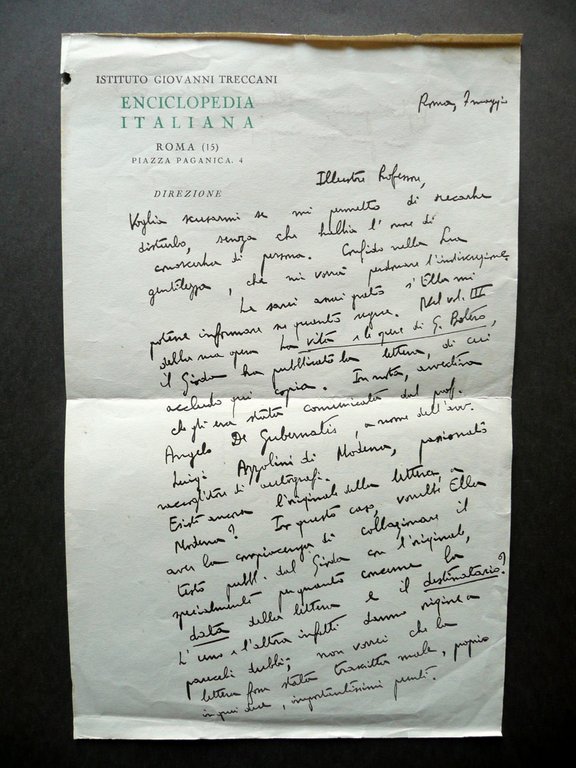 ISTITUTO GIOVANNI TRECCANI
ENCICLOPEDIA
ITALIANA
ROMA (15)
PIAZZA PAGANICA, 4
DIREZIONE
Roma, 7 maggio
Illustre Professore,
Voglia scusarmi se mi permetto di recarLe
disturbo, senza che habbia l'onore di
conoscerLa di persona. Confido nella Sua
gentilezza, che mi vorrà perdonare l'indiscrezione.
Le sarei assai grato s'Ella mi
potesse informare su quanto segue. Nel vol. III
della sua opera La vita e le opere di G. Botero,
il Gioda ha pubblicato la lettera, di cui
accludo qui copia. In nota, avvertiva
che gli era stata comunicata dal prof.
Angelo De Gubernatis, a nome dell'avv.
Luigi Azzolini di Modena, passionato
raccoglitore di autografi.
Esiste ancora l'originale della lettera, a
Modena? In questo caso, vorrebbe Ella
aver la compiacenza di collazionare il
testo pubbl. dal Gioda con l'originale,
specialmente per quanto concerne la
data della lettera e il destinatario?
L'uno e l'altra infatti danno origine a
parecchi dubbi; non vorrei che la
lettera fosse stata trascritta male, proprio
in quei due, importantissimi punti.